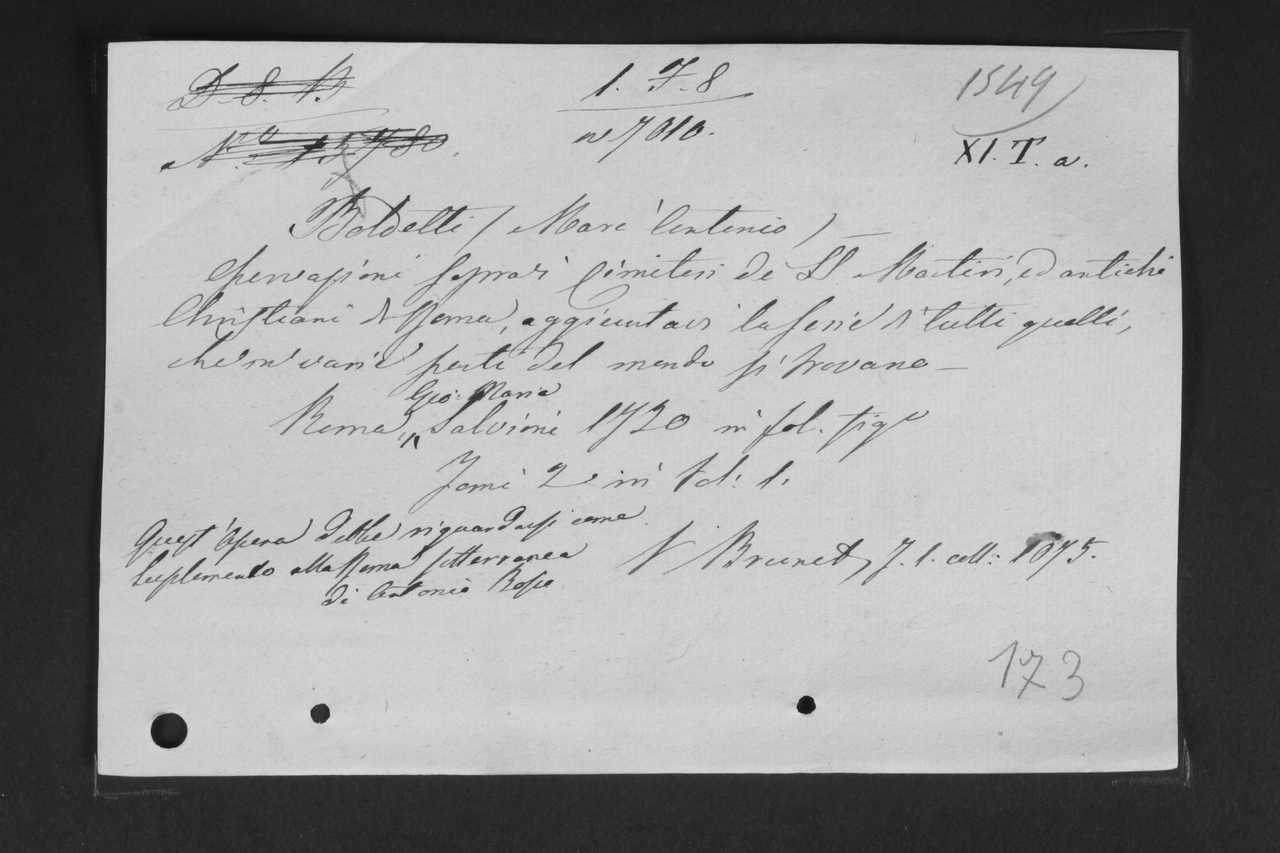 D. 8. 13
1. F. 8
1549
N.ro 15780.
n° 7010.
XI. T. a.
Boldetti (Marc' Antonio)
Osservazioni sopra i Cimiteri de SS. Martiri, ed antichi
Christiani di Roma, aggiuntavi la serie di tutti quelli,
che in varie parti del mondo si trovano —
Gio: Maria
Roma, Salvioni 1720 in fol. fig.
Tomi 2 in Vol: 1.
Quest'Opera debbe riguardarsi come
Suplemento alla Roma sotterranea
di Antonio Bosio.
V Brunet, T. 1. coll: 1075.
173